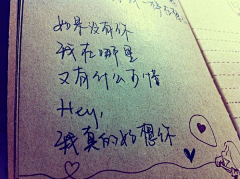 如果没有你
我在哪里
又有什么可惜
Hey,
我真的好想你